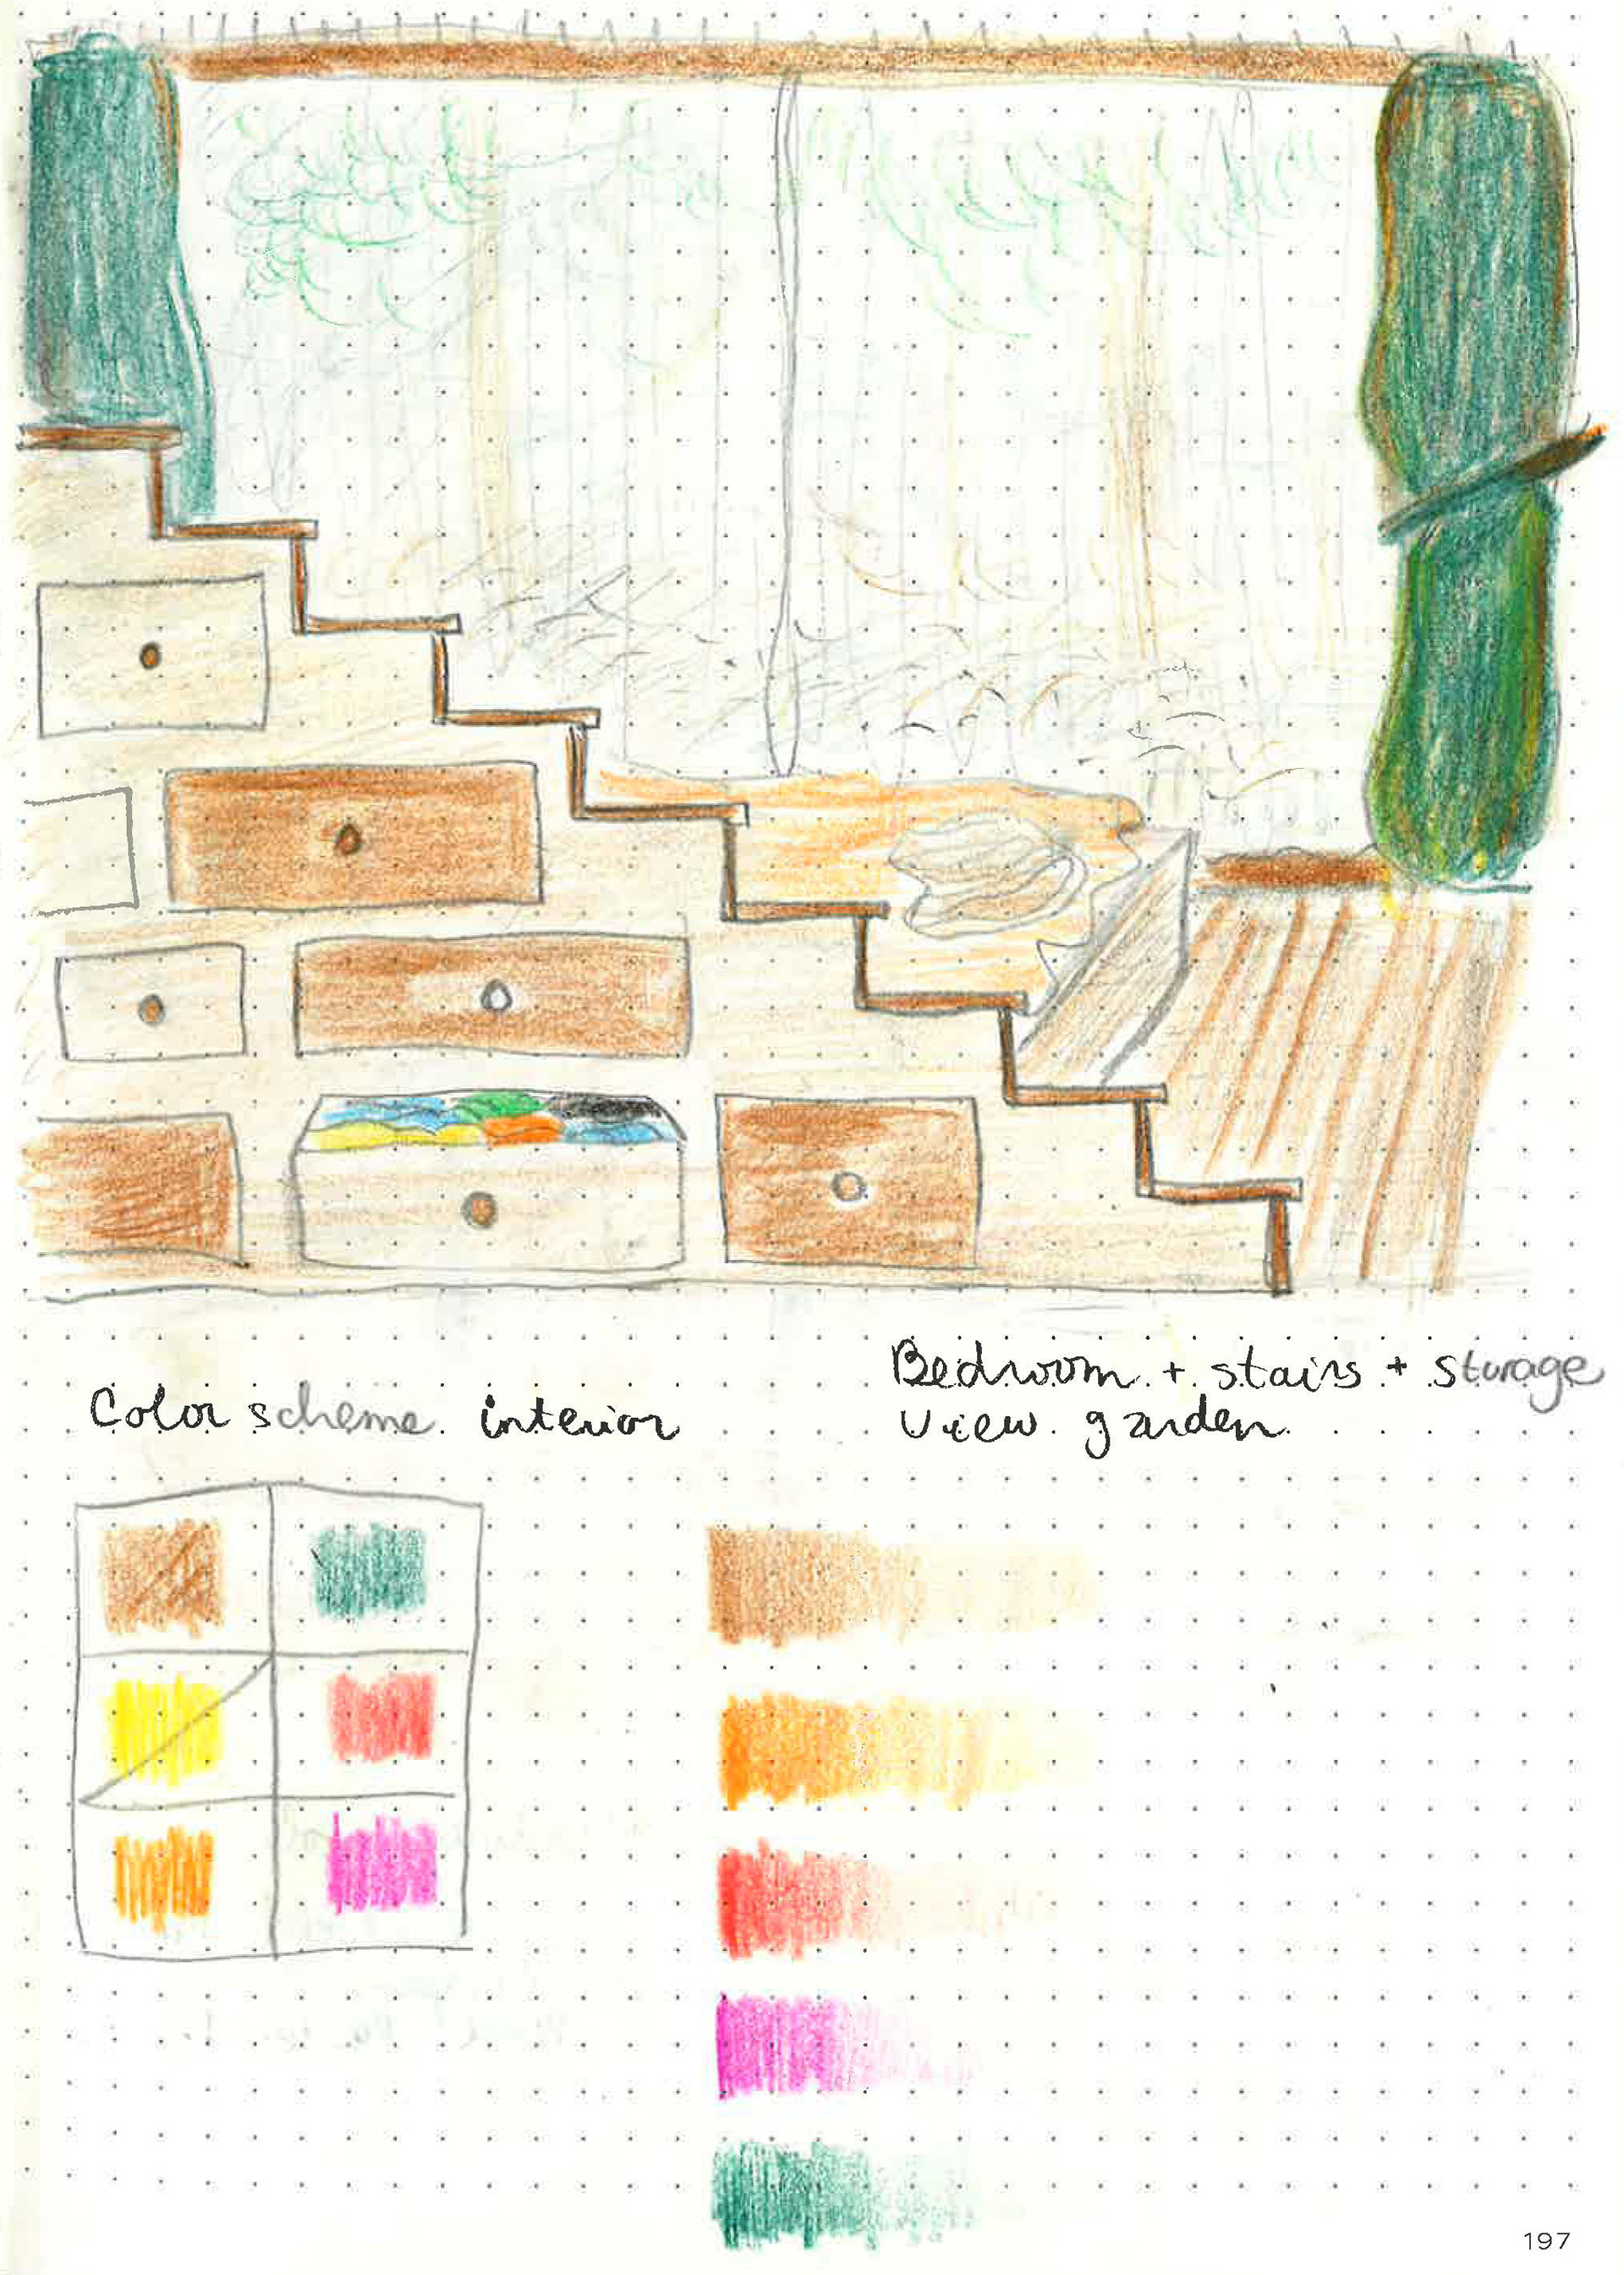 Bedroom + stairs + storage
view garden
Color scheme interior
197